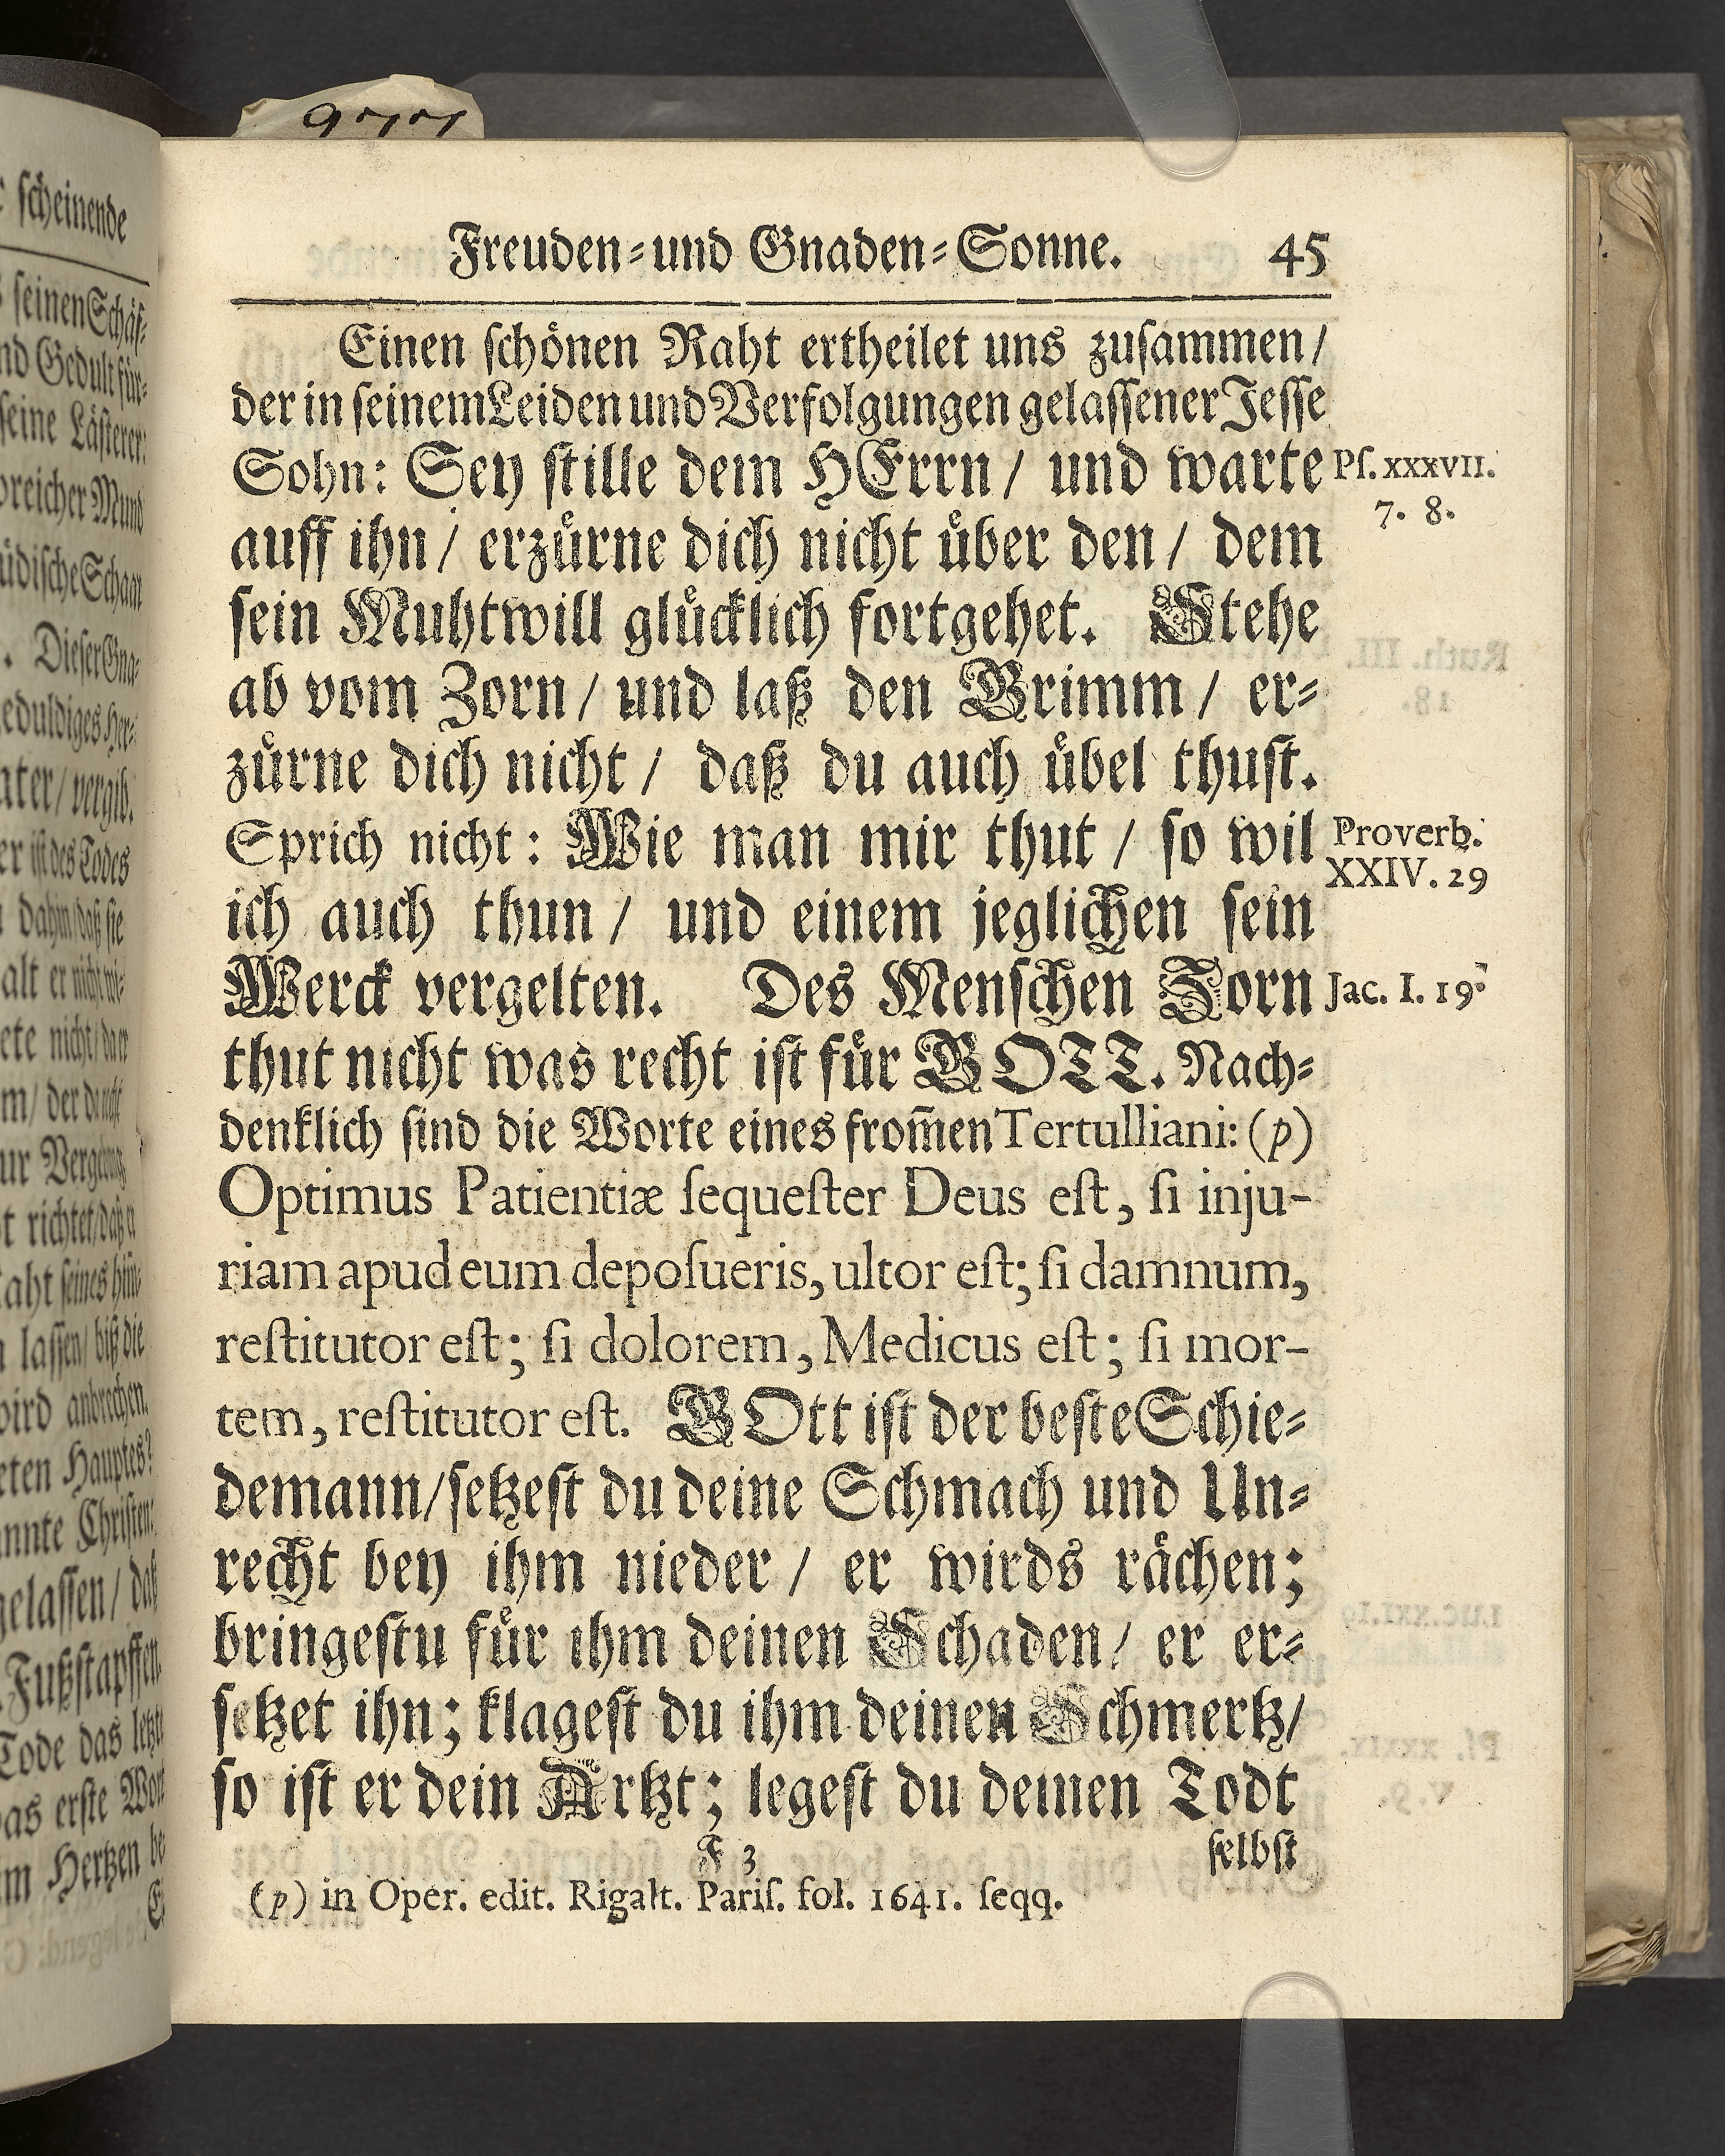 Freuden-und Gnaden-Sonne. 45
Einen ſchönen Raht ertheilet uns zuſammen/
der in ſeinem Leiden und Verfolgungen gelaſſener Jeſſe
Sohn: Sey ſtille dem HErrn/ und warte
Pſ. XXXVII.
7. 8.
auff ihn/ erzürne dich nicht über den/ dem
ſein Muhtwill glücklich fortgehet. Stehe
ab vom Zorn/ und laß den Grimm/ er-
zürne dich nicht/ daß du auch übel thuſt.
Sprich nicht: Wie man mir thut/ ſo wil
Proverb.
XXIV. 29
ich auch thun/ und einem jeglichen ſein
Werck vergelten. Des Menſchen Zorn
Jac. I. 19.
thut nicht was recht iſt für GOTT. Nach-
denklich ſind die Worte eines from̃en Tertulliani: (p)
Optimus Patientiæ ſequeſter Deus eſt, ſi inju-
riam apud eum depoſueris, ultor eſt; ſi damnum,
reſtitutor eſt; ſi dolorem, Medicus eſt; ſi mor-
tem, reſtitutor eſt. GOtt iſt der beſte Schie-
demann/ ſetzeſt du deine Schmach und Un-
recht bey ihm nieder/ er wirds rächen;
bringeſtu für ihm deinen Schaden/ er er-
ſetzet ihn; klageſt du ihm deinen Schmertz/
ſo iſt er dein Artzt; legeſt du deinen Todt
F 3 ſelbſt
(p) in Oper. edit. Rigalt. Pariſ. fol. 1641. ſeqq.
ſcheinende
ſeinen Schäf-
Gedult für-
ſeine Läſterer:
Mund
Schaar
Dieſer Gna-
vergib.
iſt des Todes
richtet/
laſſen/ biß die
anbrechen.
Hauptes?
Chriſten:
gelaſſen/ daß
Fußſtapffen
Tode das
erſte
Hertzen